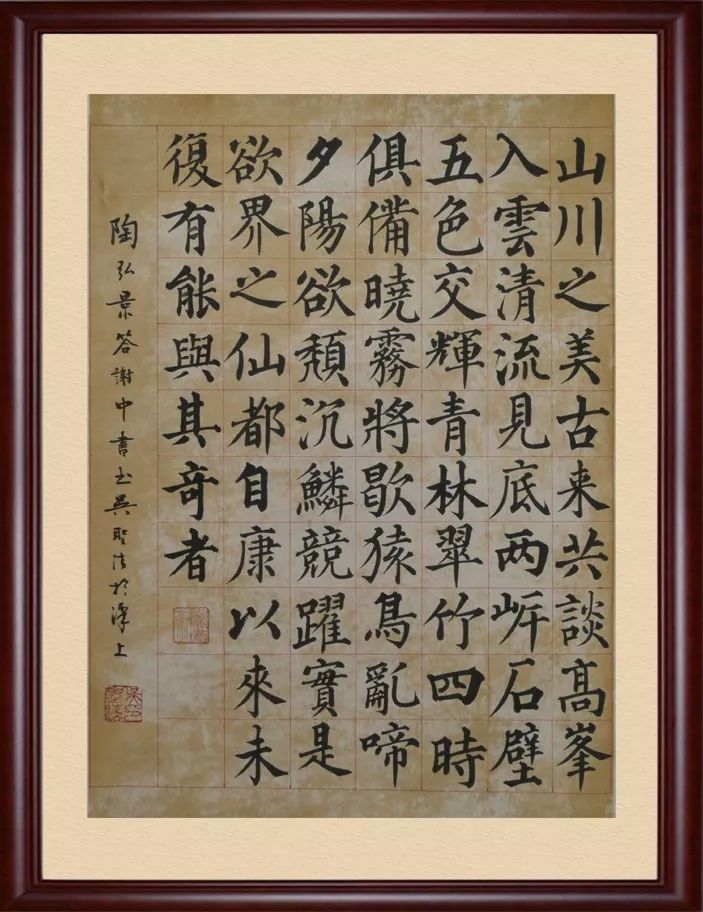 山川之美古来共談髙峯
入雲清流見底两岍石壁
五色交輝青林翠竹四時
俱備曉霧將歇猿鳥亂啼
夕陽欲頹沉鱗競躍實是
欲界之仙都自康以來未
復有能與其奇者
陶弘景答謝中書书吳聖法於上